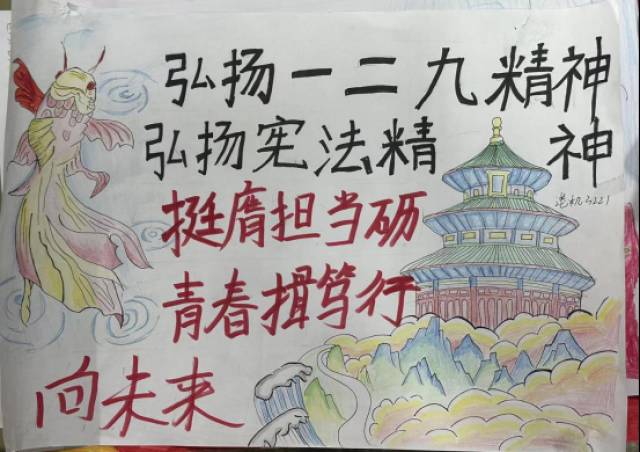 弘扬一二九精神
弘扬宪法精神
挺膺担当砺
青春揖笃行
向未来